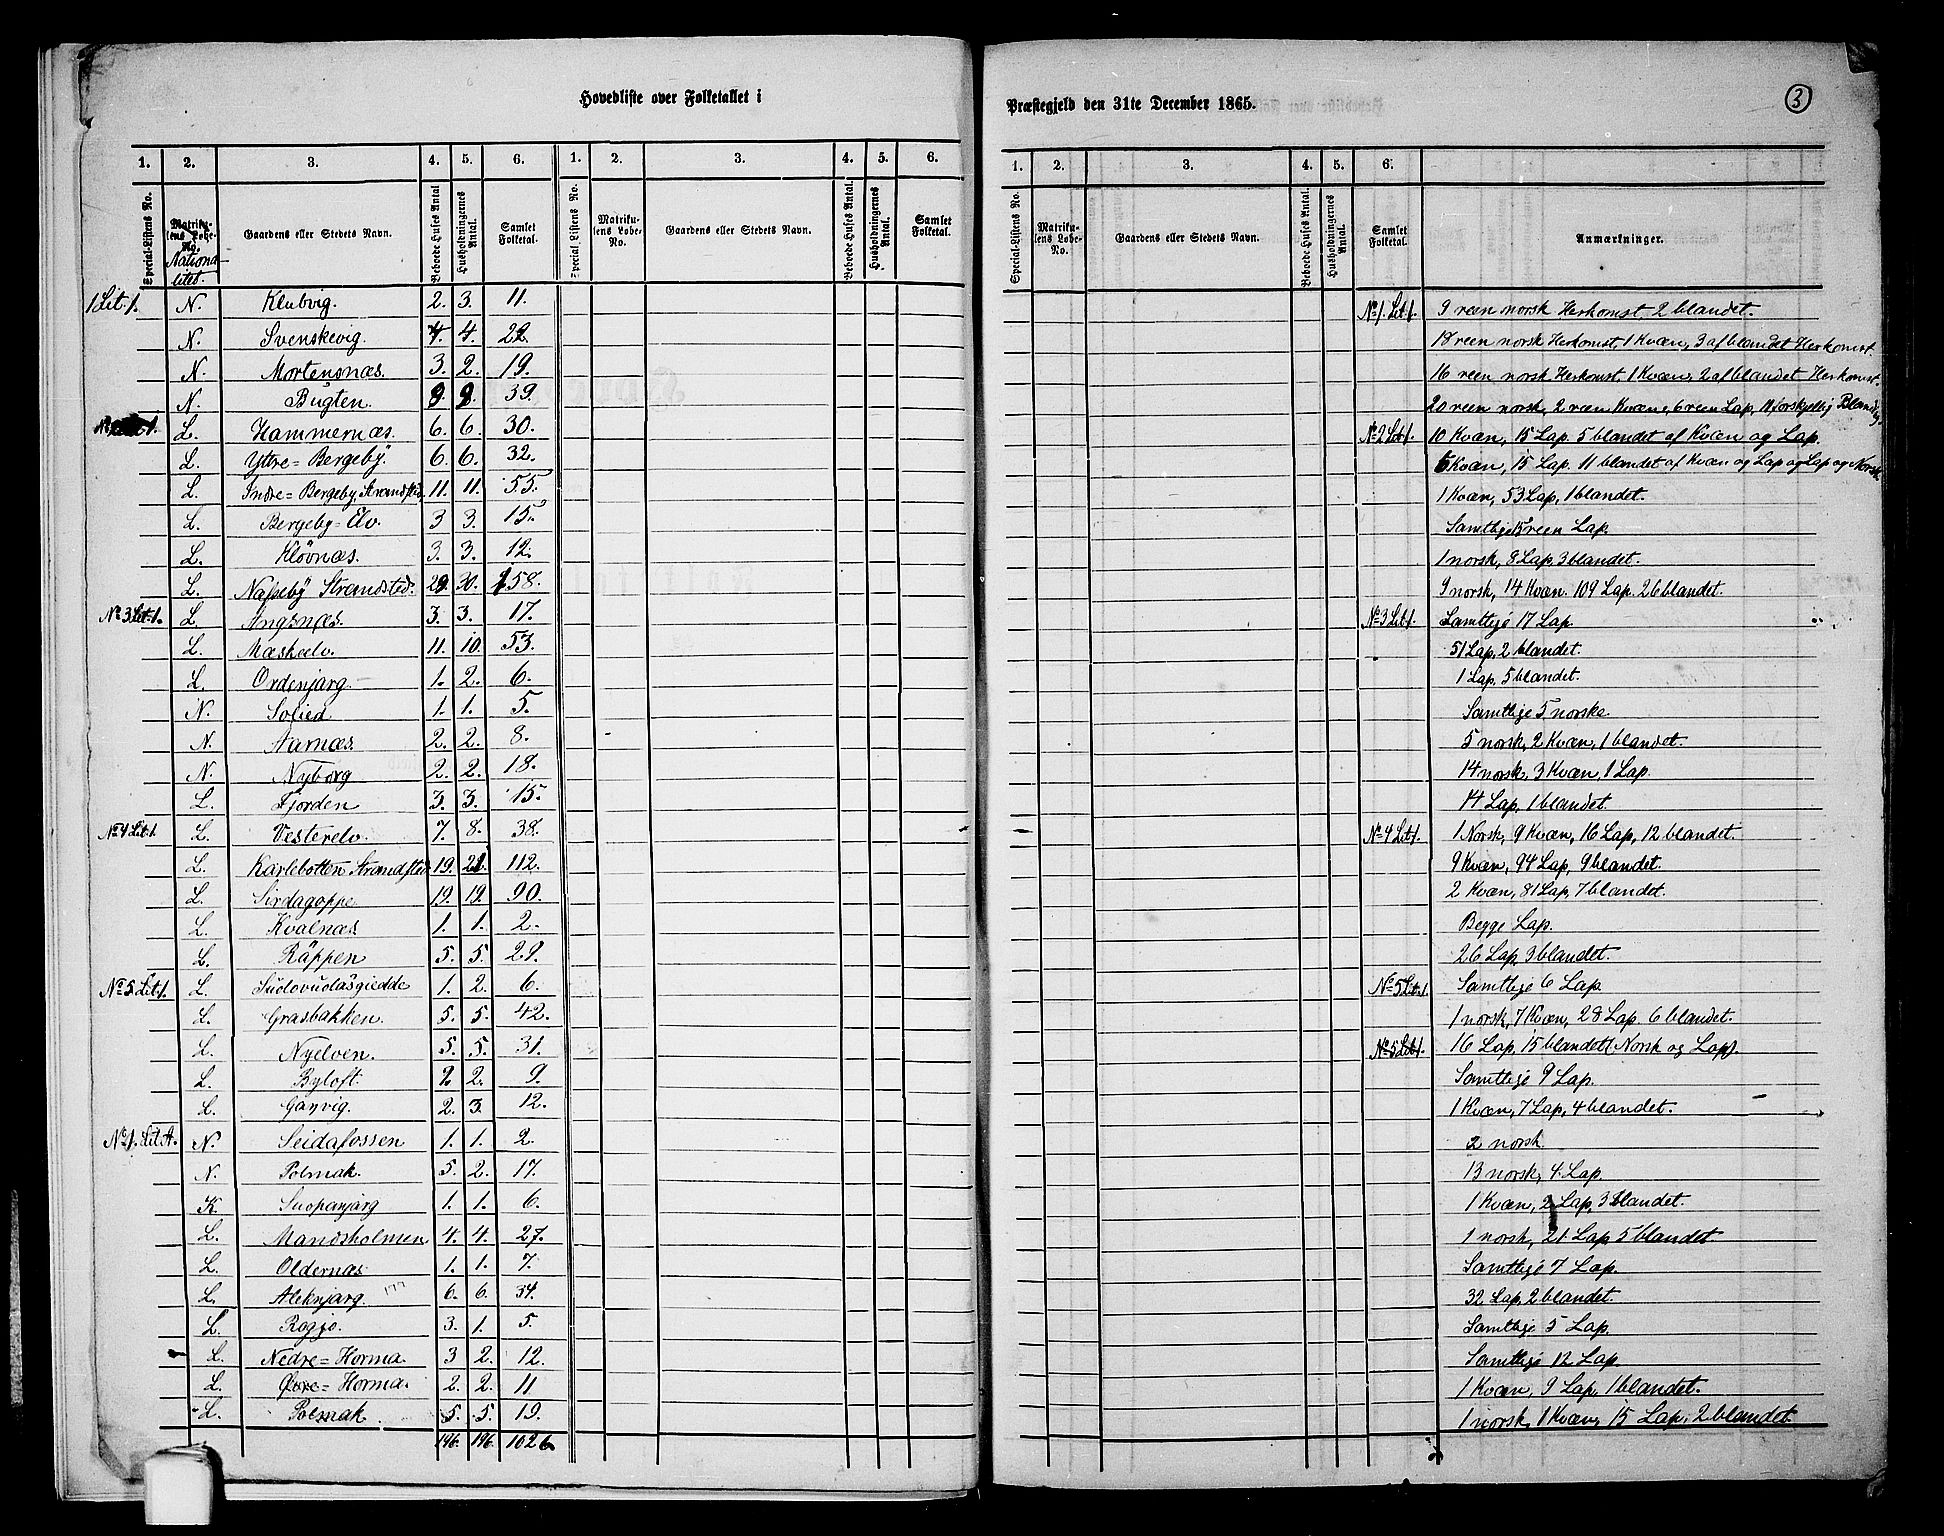 Hovedliste over Folketallet i
1. 2. 3. 4. 5. 6. 1. 2. 3. 4. 5. 6.
Special-Listens No. Matrikulens Løbe-No. Nationalited. Gaardens eller Stedets Navn. Beboede Huses Antal Husholdningernes Antal. Samlet Folketal. Special-Listens No. Matrikulens Løbe-No. Gaardens eller Stedets Navn. Beboede Huses Antal. Husholdningernes Antal. Samlet Folketal.
1 Lit. 1. N. Klubvig. 2. 3. 11.
N. Svenskevig. 4. 4. 22.
N. Mortensnæs. 3. 2. 19.
N. Bugten. 9. 9. 39.
L. Hammernæs. 6. 6. 30.
L. Yttre=Bergeby. 6. 6. 32.
L. Indre=Bergeby, Strandsted. 11. 11. 55.
L. Bergeby=Elv. 3 3. 15.
L. Kløvnæs. 3. 3. 12.
L. Næseby Strandsted. 29. 30. 158.
No 3 Lit. 1. L. Angsnæs. 3. 3. 17.
L. Mæskeelv. 11. 10. 53.
L. Ordenjarg. 1. 2. 6.
N. Solied 1. 1. 5.
N. Aarnæs. 2. 2. 8.
N. Nyborg 2. 2. 18.
L. Fjorden 3. 3. 15.
No 4 Lit. 1. L. Vesterelv. 7. 8. 38.
L. Karlebotten Strandsted 19. 21. 112.
L. Sirdagoppe 19. 19. 90.
L. Kvalnæs 1. 1. 2.
L. Räppen 5. 5. 29.
No 5 Lit. 1. L. Sudovudasgiedde 1. 2. 6.
L. Grasbakken. 5. 5. 42.
L. Nyelven. 5. 5. 31.
L. Byloft. 2. 2. 9.
L. Ganvig. 2. 3. 12.
No 1. Lit. A. N. Seidafossen 1. 1. 2.
N. Polmak. 5. 2. 17.
K. Suopanjarg 1. 1. 6.
L. Mandsholmen 4. 4. 27.
L. Oldernæs 1. 1. 7.
L. Aleknjarg. 6. 6. 34.
L. Roggo. 3. 1. 5.
L. Nedre=Horma. 3 2. 12.
L. Øvre=Horma. 2. 2. 11
L. Polmak 5. 5. 19.
196. 196. 1026
Præstegjeld den 31te December 1865.
3
1. 2. 3. 4. 5. 6.
Special-Listens No. Matrikulens Løbe-No. Gaardens eller Stedets Navn. Beboede Huses Antal. Husholdningernes Antal. Samlet Folketal. Anmærkninger.
No 1. Lit 1. 9 reen norsk Herkomst, 2 blandet.
18 reen norsk Herkomst, 1 Kvæn, 3 af blandet Herkomst.
16 reen norsk Herkomst, 1 Kvæn, 2 af blandet Herkomst.
20 reen norsk, 2 reen Kvæne, 6 reen Lap, 11 forskjellig Blanding.
No 2 Lit 1. 10 Kvæn, 15 Lap. 5 blandet af Kvæn og Lap.
6 Kvæn, 15 Lap. 11 blandet af Kvæn og Lap og Lap og Norsk
1 Kvæn, 53 Lap, 1 blandet.
Samtlige 15 reen Lap.
1 norsk, 8 Lap, 3 blandet.
9 norsk, 14 Kvæn. 109 Lap. 26 blandet.
No 3 Lit 1. Samtlige 17 Lap.
51 Lap, 2 blandet.
1 Lap, 5 blandet.
Samtlige 5 norske.
5 norsk, 2 Kvæn, 1 blandet.
14 norsk, 3 Kvæn, 1 Lap.
14 Lap, 1 blandet.
No 4 Lit 1. 1 Norsk, 9 Kvæn, 16 Lap, 12 blandet.
9 Kvæn, 94 Lap, 9 blandet.
2 Kvæn, 81 Lap, 7 blandet.
Begge Lap.
26 Lap, 3 blandet.
No 5 Lit. 1. Samtlige 6 Lap.
1 norsk, 7 Kvæn, 28 Lap. 6 blandet.
No 5 Lit 1. 16 Lap, 15 blandet (Norsk og Lap).
Samtlige 9 Lap.
1 Kvæn, 7 Lap, 4 blandet.
2 norsk.
13 norsk, 4 Lap.
1 Kvæn, 2 Lap, 3 blandet.
1 norsk, 21 Lap 5 blandet
Samtlige 7 Lap.
32 Lap, 2 blandet.
Samtlige 5 Lap.
Samtlige 12 Lap.
1 Kvæn, 9 Lap, 1 blandet.
1 norsk, 1 Kvæn, 15 Lap, 2 blandet.